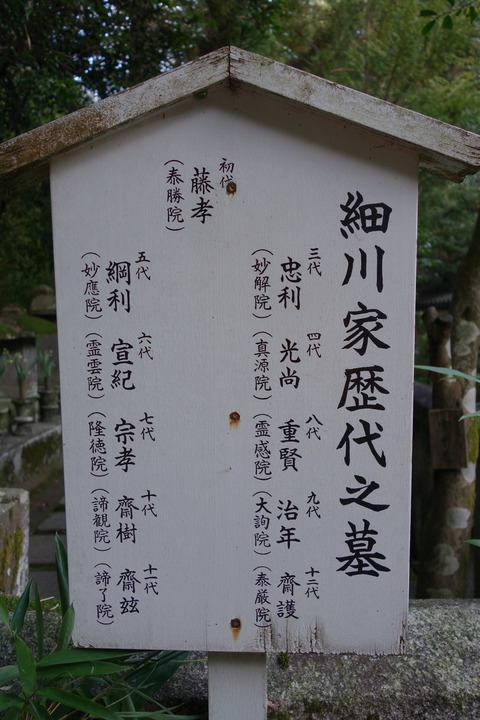 細川家歴代之墓
初代
藤孝
(泰勝院)
三代
忠利
(妙解院)
四代
光尚
(真源院)
八代
重賢
(霊感院)
九代
治年
(大詢院)
十二代
齋護
(泰厳院)
五代
綱利
(妙應院)
六代
宣紀
(霊雲院)
七代
宗孝
(隆德院)
十代
齋樹
(諦観院)
十一代
齋玆
(諦了院)